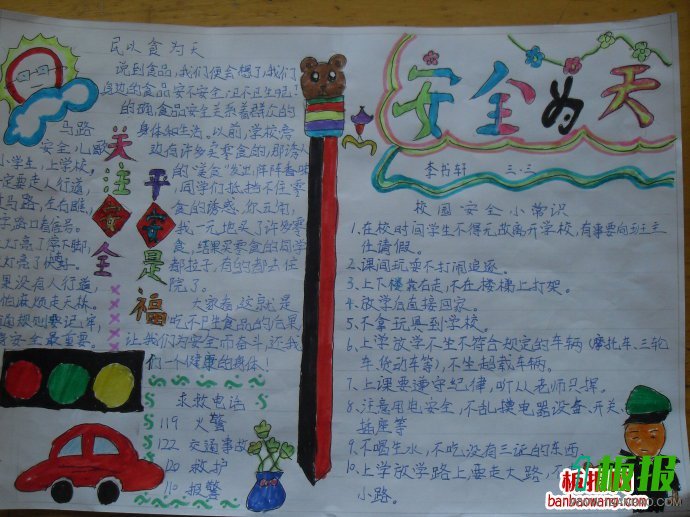 民以食为天
说到食品,我们便会想了,我们
身边的食品安不安全,卫不卫生呢?
的确,食品安全关系着群众的
身体和生活。以前,学校旁
边有许多买零食的,那诱人
的"美食"发出阵阵香味
同学们抵挡不住零
食的诱惑,你五角,
我一元地买了许多零
食,结果买零食的同学
都拉子,有的都去住
院了。
大家看,这就是
吃不卫生食品的后果
让我们为安全而奋斗,还我
们一个健康的身体!
马路
安全儿歌
小学生,上学校,
定要走人行道,
过马路,左右瞧,
字路口看信号。
灯亮了停下脚,
灯亮了快
果没有人行道,
规则要记牢,
安全最重要。
关注安全
平安是福
求救电话
119 火警
122 交通事故
120 救护
110 报警
安全为天
李书轩 三.三
校园安全小常识
1、在校时间学生不得无故离开学校,有事要向班主
任请假。
2、课间玩耍不打闹追逐。
3、上下楼靠右走,不在楼梯上打架。
4、放学后直接回家。
5、不拿玩具到学校。
6、上学放学不坐不符合规定的车辆(摩托车、三轮
车、货动车等),不坐超载车辆。
7、上课要遵守纪律,听从老师只挥。
8、注意用电安全,不乱摸电器设备、开关、
插座等
9、不喝生水,不吃没有三证的东西。
10、上学放学路上要走大路,不
小路。
板报
banbaowang.com